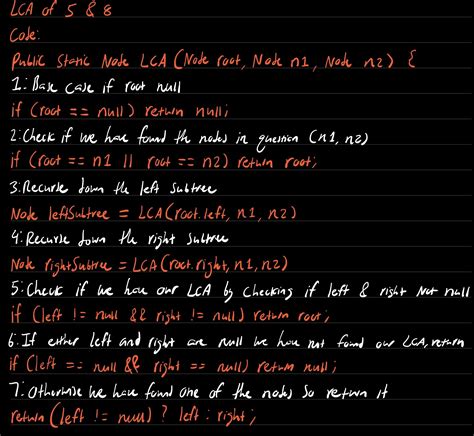 LCA of 5 & 8
Code:
Public Static Node LCA (Node root, Node n1, Node n2) {
1: Base case if root null
if (root == null) return null;
2: Check if we have found the nodes in question (n1, n2)
if (root == n1 || root == n2) return root;
3: Recurse down the left subtree
Node leftSubtree = LCA(root.left, n1, n2)
4: Recurse down the right subtree
Node rightSubtree = LCA(root.right, n1, n2)
5: Check if we have our LCA by checking if left & right Not null
if (left != null && right != null) return root;
6: If either left and right are null we have not found our LCA, return
if (left == null && right == null) return null;
7: Otherwise we have found one of the nodes so return it
return (left != null) ? left : right;